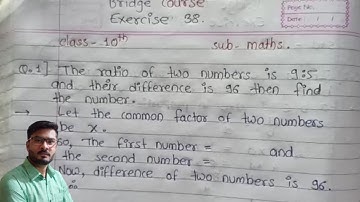 Bridge Course
Exercise 38.
Page No.
Date
class - 10th sub - maths.
Q.1] The ratio of two numbers is 9:5
and their difference is 96 then find
the number.
→ Let the common factor of two numbers
be x.
So, The first number = and
the second number =
Now, difference of two numbers is 96.